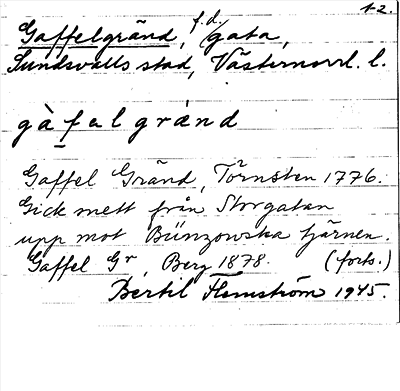 1-2.
Gaffelgränd, f.d. gata,
Sundsvalls stad, Västernorrl. l.
gàfalgränd
Gaffel Gränd, Törnsten 1776.
Gick mett från Storgatan
upp mot Bünzowska tjärnen.
Gaffel Gr, Berg 1878. (forts.)
Bertil Flemström 1945.